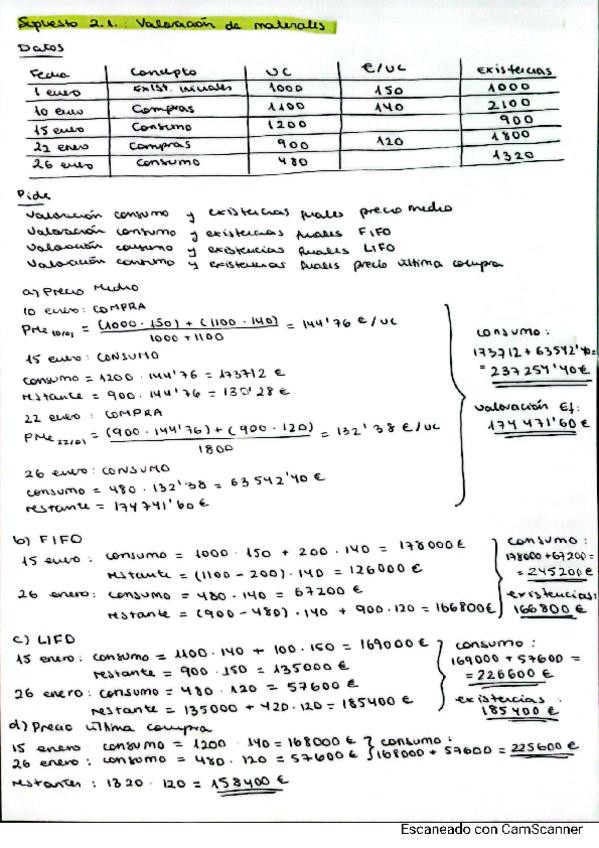 Supuesto 2.1.: Valoración de materiales
Datos
Fecha Concepto UC €/UC Existencias
1 enero Exist. iniciales 1000 150 1000
10 enero Compras 1100 140 2100
15 enero Consumo 1200 900
22 enero Compras 900 120 1800
26 enero Consumo 480 1320
Pide
Valoración consumo y existencias finales precio medio
Valoración consumo y existencias finales FIFO
Valoración consumo y existencias finales LIFO
Valoración consumo y existencias finales precio última compra
a) Precio Medio
10 enero: COMPRA
PMe 10/01 = (1000 · 150) + (1100 · 140) / 1000 + 1100 = 144'76 €/UC
15 enero: CONSUMO
consumo = 1200 · 144'76 = 173712 €
restante = 900 · 144'76 = 130'28 €
22 enero: COMPRA
PMe 22/01 = (900 · 144'76) + (900 · 120) / 1800 = 132'38 €/UC
26 enero: CONSUMO
consumo = 480 · 132'38 = 63542'40 €
restante = 174741'60 €
consumo:
173712 + 63542'40 =
= 237254'40 €
Valoración Ef:
174471'60 €
b) FIFO
15 enero: consumo = 1000 · 150 + 200 · 140 = 178000 €
restante = (1100 - 200) · 140 = 126000 €
26 enero: consumo = 480 · 140 = 67200 €
restante = (900 - 480) · 140 + 900 · 120 = 166800 €
consumo:
178000 + 67200 =
= 245200 €
existencias:
166800 €
c) LIFO
15 enero: consumo = 1100 · 140 + 100 · 150 = 169000 €
restante = 900 · 150 = 135000 €
26 enero: consumo = 480 · 120 = 57600 €
restante = 135000 + 420 · 120 = 185400 €
consumo:
169000 + 57600 =
= 226600 €
existencias:
185400 €
d) Precio última compra
15 enero: consumo = 1200 · 140 = 168000 €
26 enero: consumo = 480 · 120 = 57600 €
consumo:
168000 + 57600 = 225600 €
restantes: 1320 · 120 = 158400 €
Escaneado con CamScanner